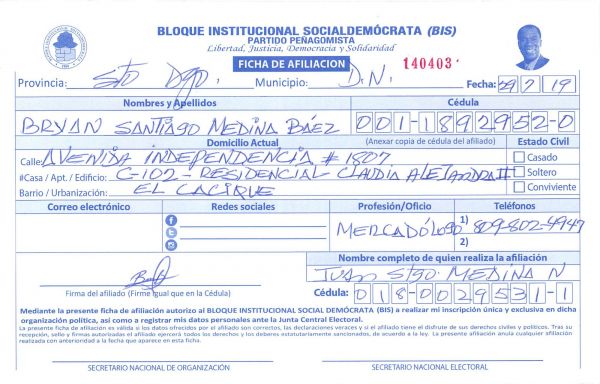 BLOQUE INSTITUCIONAL SOCIALDEMÓCRATA (BIS)
PARTIDO PEÑAGOMISTA
Libertad, Justicia, Democracia y Solidaridad
FICHA DE AFILIACION 140403
Provincia: Sto Dgo. Municipio: D.N. Fecha: 29 7 19
Nombres y Apellidos Cédula
BRYAN SANTIAGO MEDINA BÁEZ 001-1892952-0
Domicilio Actual (Anexar copia de cédula del afiliado) Estado Civil
Calle: AVENIDA INDEPENDENCIA # 1807 Casado
#Casa / Apt. / Edificio: C-102 - RESIDENCIAL CLAUDIA ALEJANDRA II Soltero
Barrio / Urbanización: EL CACIQUE Conviviente
Correo electrónico Redes sociales Profesión/Oficio Teléfonos
MERCADÓLOGO 1) 809-802-4947
2)
Nombre completo de quien realiza la afiliación
JUAN STGO MEDINA N
Firma del afiliado (Firme igual que en la Cédula) Cédula: 018-0029531-1
Mediante la presente ficha de afiliación autorizo al BLOQUE INSTITUCIONAL SOCIAL DEMÓCRATA (BIS) a realizar mi inscripción única y exclusiva en dicha
organización política, así como a registrar mis datos personales ante la Junta Central Electoral.
La presente ficha de afiliación es válida si los datos ofrecidos por el afiliado son correctos, las declaraciones veraces y si el afiliado tiene el disfrute de sus derechos civiles y políticos. Tras su
recepción, sello y firmas autorizadas el afiliado ejercerá todos los derechos y los deberes estatutariamente sancionados, de acuerdo a la ley. La presente afiliación anula cualquier afiliación
realizada con anterioridad a la fecha que aparece en esta ficha.
SECRETARIO NACIONAL DE ORGANIZACIÓN SECRETARIO NACIONAL ELECTORAL